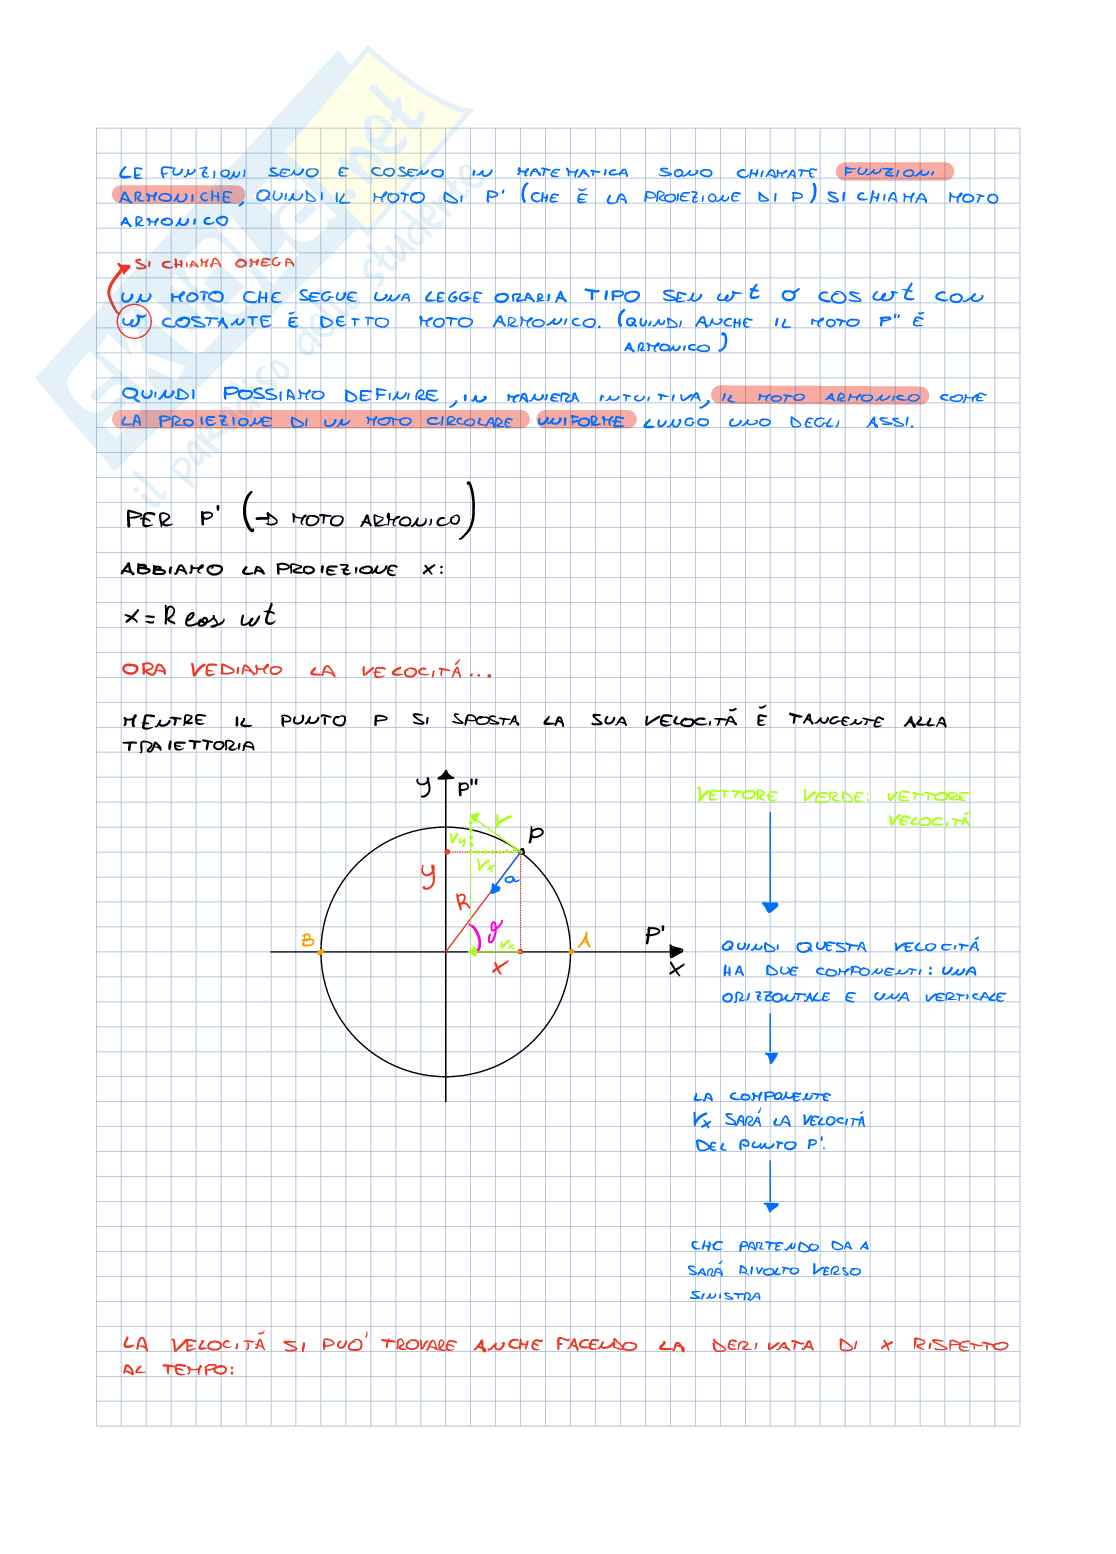 LE FUNZIONI SENO E COSENO IN MATEMATICA SONO CHIAMATE FUNZIONI
ARMONICHE, QUINDI IL MOTO DI P' (CHE Ě LA PROIEZIONE DI P) SI CHIAMA MOTO
ARMONICO
SI CHIAMA OMEGA
UN MOTO CHE SEGUE UNA LEGGE ORARIA TIPO SEN ωt O COS ωt CON
ω COSTANTE É DETTO MOTO ARMONICO. (QUINDI ANCHE IL MOTO P" É
ARMONICO)
QUINDI POSSIAMO DEFINIRE, IN MANIERA INTUITIVA, IL MOTO ARMONICO COME
LA PROIEZIONE DI UN MOTO CIRCOLARE UNIFORME LUNGO UNO DEGLI ASSI.
PER P' (→ MOTO ARMONICO)
ABBIAMO LA PROIEZIONE X:
x = R cos ωt
ORA VEDIAMO LA VELOCITÁ...
MENTRE IL PUNTO P SI SPOSTA LA SUA VELOCITÁ É TANGENTE ALLA
TRAIETTORIA
y P"
V P
Vy
Vx
y
a
R
B
ϑ
Vx
A
P'
X
X
VETTORE VERDE: VETTORE
VELOCITÁ
QUINDI QUESTA VELOCITÁ
HA DUE COMPONENTI: UNA
ORIZZONTALE E UNA VERTICALE
LA COMPONENTE
Vx SARÁ LA VELOCITÁ
DEL PUNTO P'.
CHE PARTENDO DA A
SARÁ RIVOLTO VERSO
SINISTRA
LA VELOCITÁ SI PUO' TROVARE ANCHE FACENDO LA DERIVATA DI X RISPETTO
AL TEMPO:
skuola.net
il paradiso dello studente